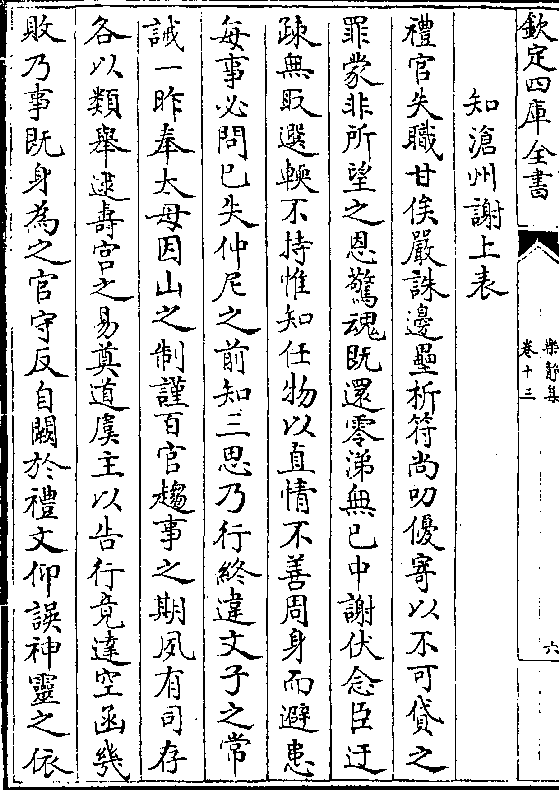 欽定四庫全書
樂靜集
卷十三
六
知滄州謝上表
禮官失職甘俟嚴誅邊壘析符尚叨優寄以不可貸之
罪蒙非所望之恩驚魂既還零涕無已中謝伏念臣迂
疎無取選軟不持惟知任物以直情不善周身而避患
每事必問已失仲尼之前知三思乃行終違文子之常
誡一昨奉太母因山之制謹百官趨事之期夙有司存
各以類舉逮壽宫之易奠道虞主以告行竟達空函幾
敗乃事既身為之官守反自闕於禮文仰誤神靈之依